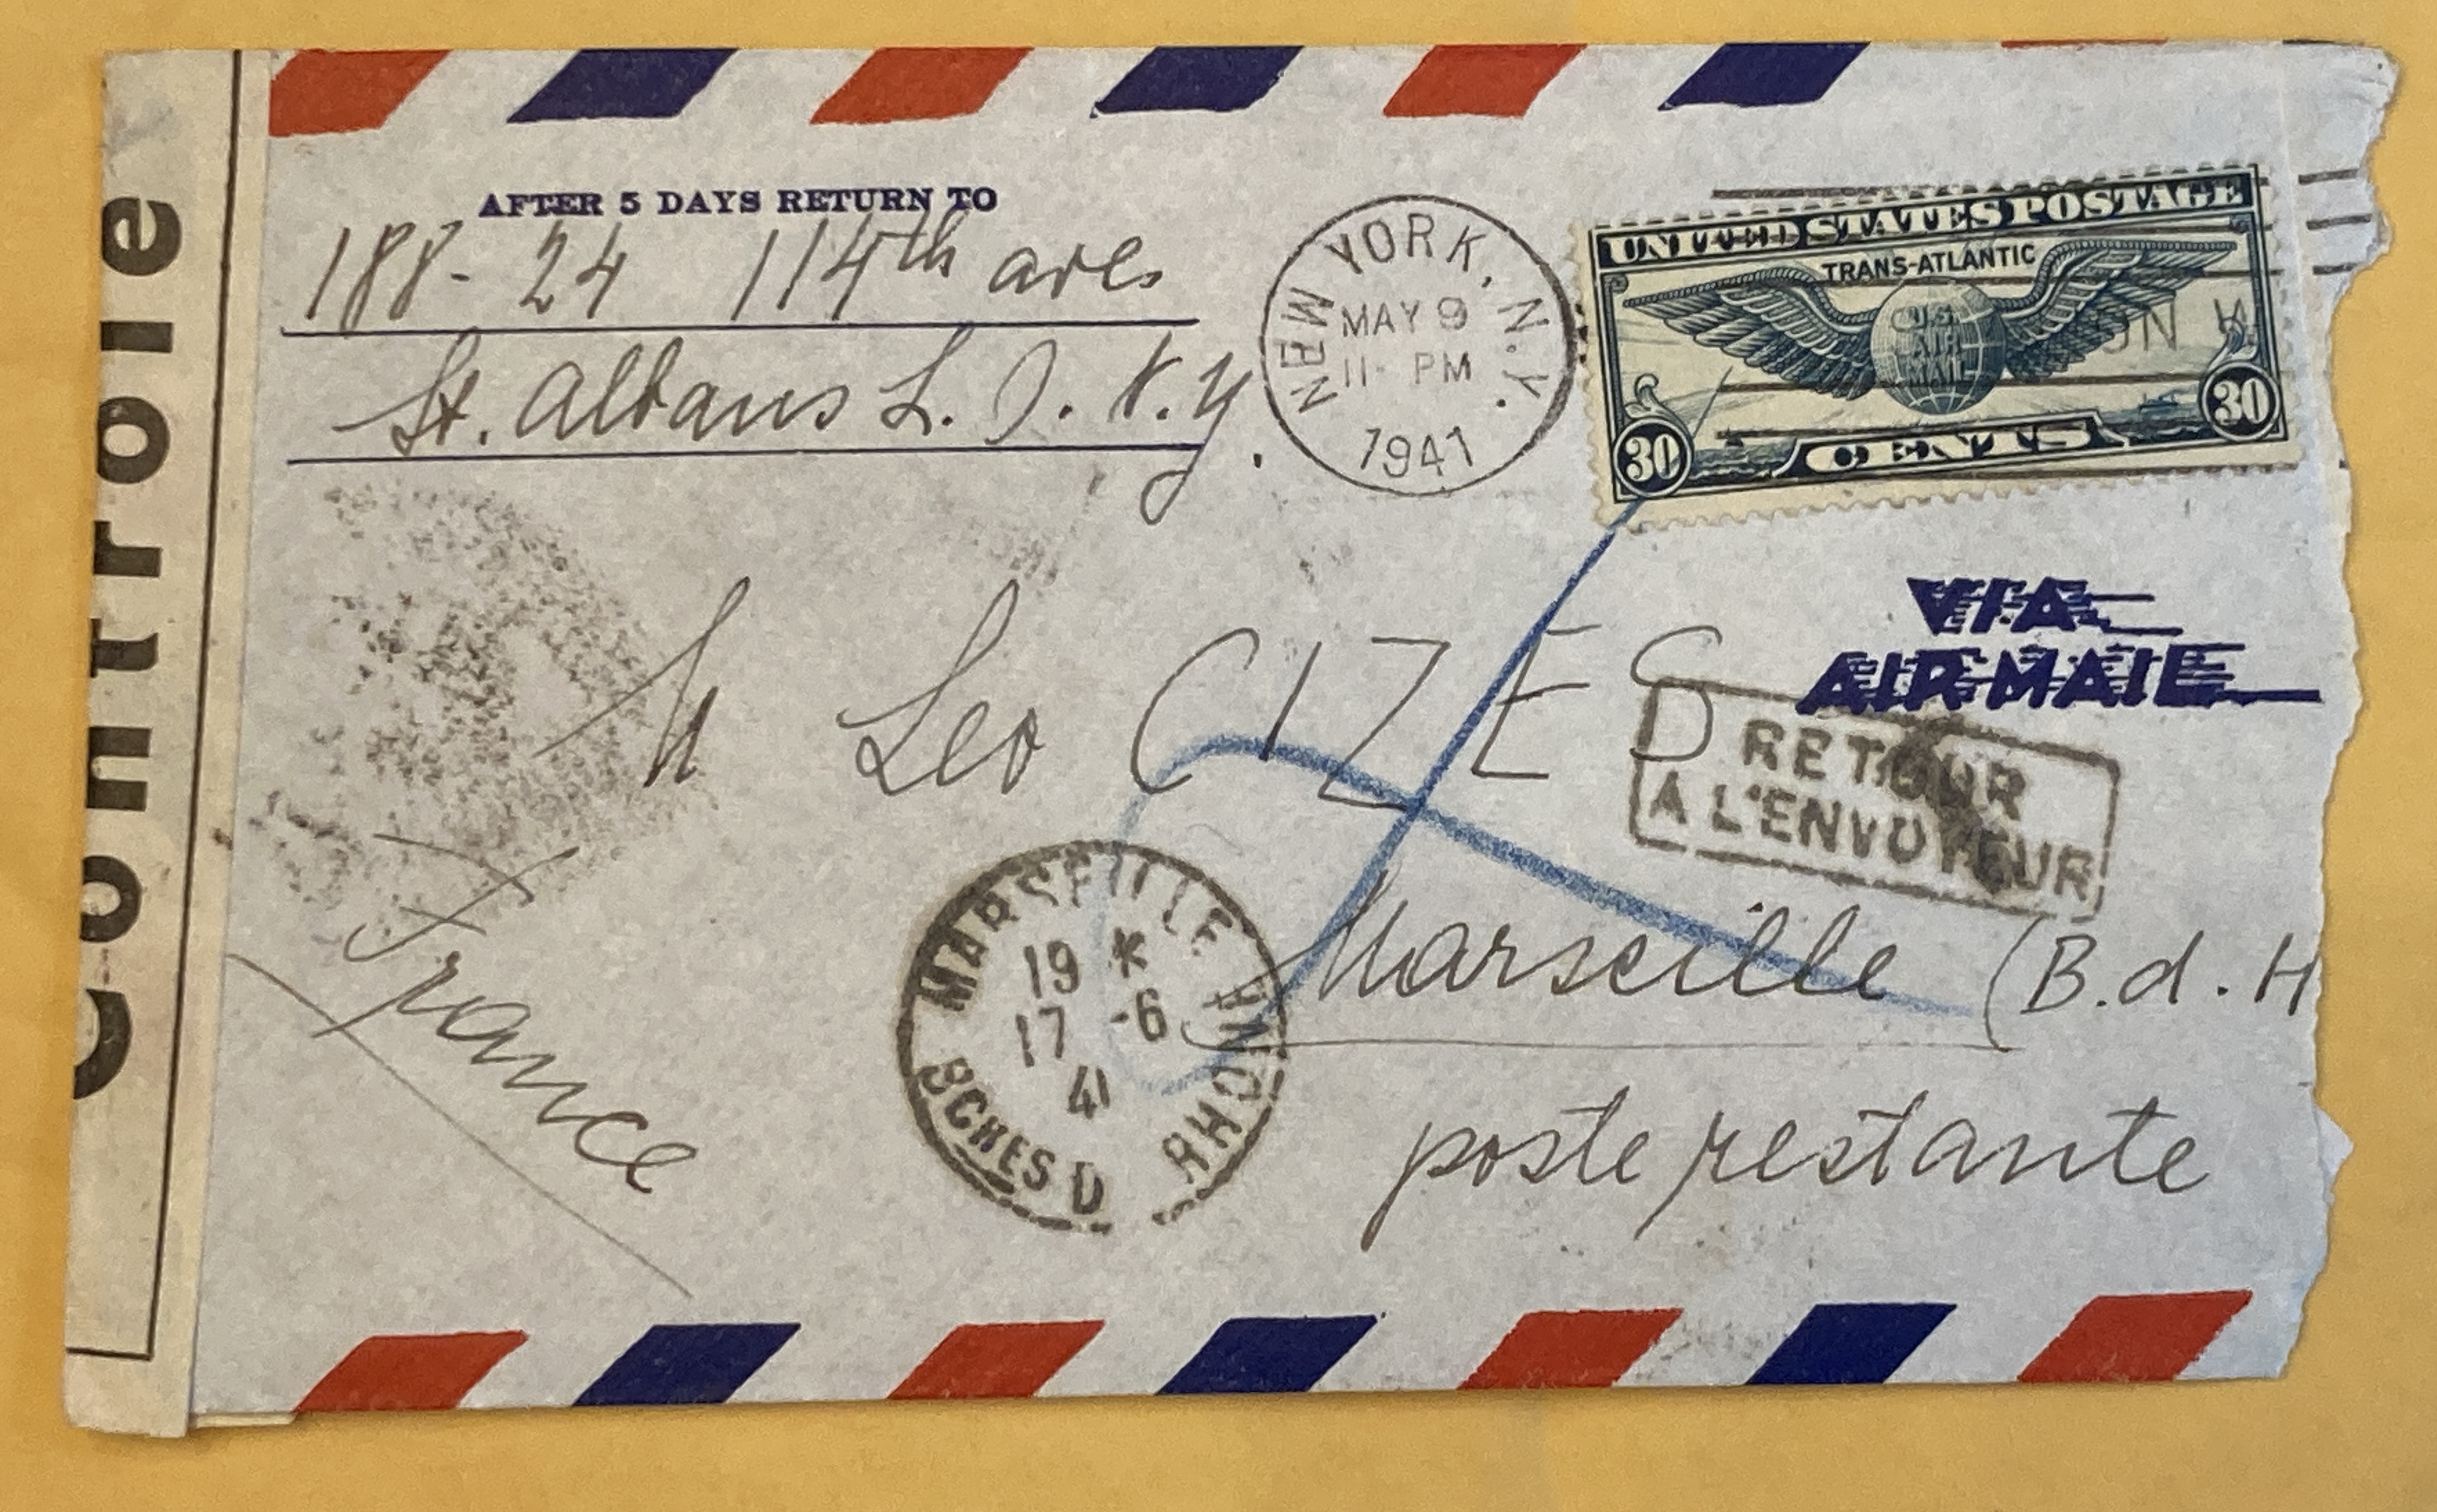 Contrôle
AFTER 5 DAYS RETURN TO
188-24 114th ave
St. Albans L. I. N.Y.
NEW YORK, N.Y.
MAY 9
11- PM
1941
UNITED STATES POSTAGE
TRANS-ATLANTIC
U.S.
AIR
MAIL
30 CENTS 30
VIA
AIR MAIL
M Leo CIZES
RETOUR
A L'ENVOYEUR
MARSEILLE
19 *
17 -6
41
BCHES D RHONE
Marseille (B.d.H
poste restante
France